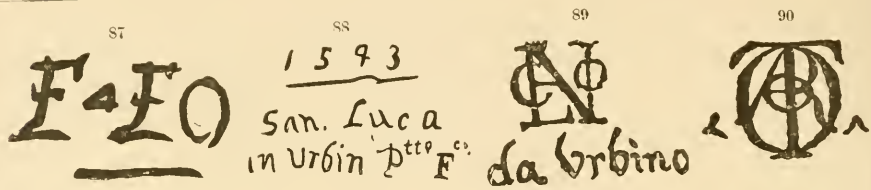 87
F·F O
88
1 5 9 3
San. Luca
in Urbin Ptto Fco.
89
da Urbino
90